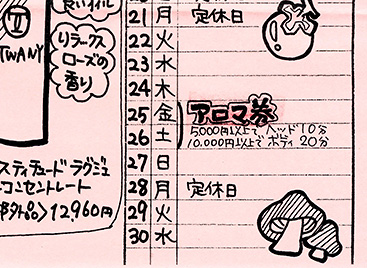 良いオイル
TWANY
リラックス
ローズの
香り
スティチュード ラグジュ
コンセントレート
12,960円
21 月 定休日
22 火
23 水
24 木
25 金 アロマ券
5,000円以上で、ヘッド10分
26 土 10,000円以上でボディ20分
27 日
28 月 定休日
29 火
30 水